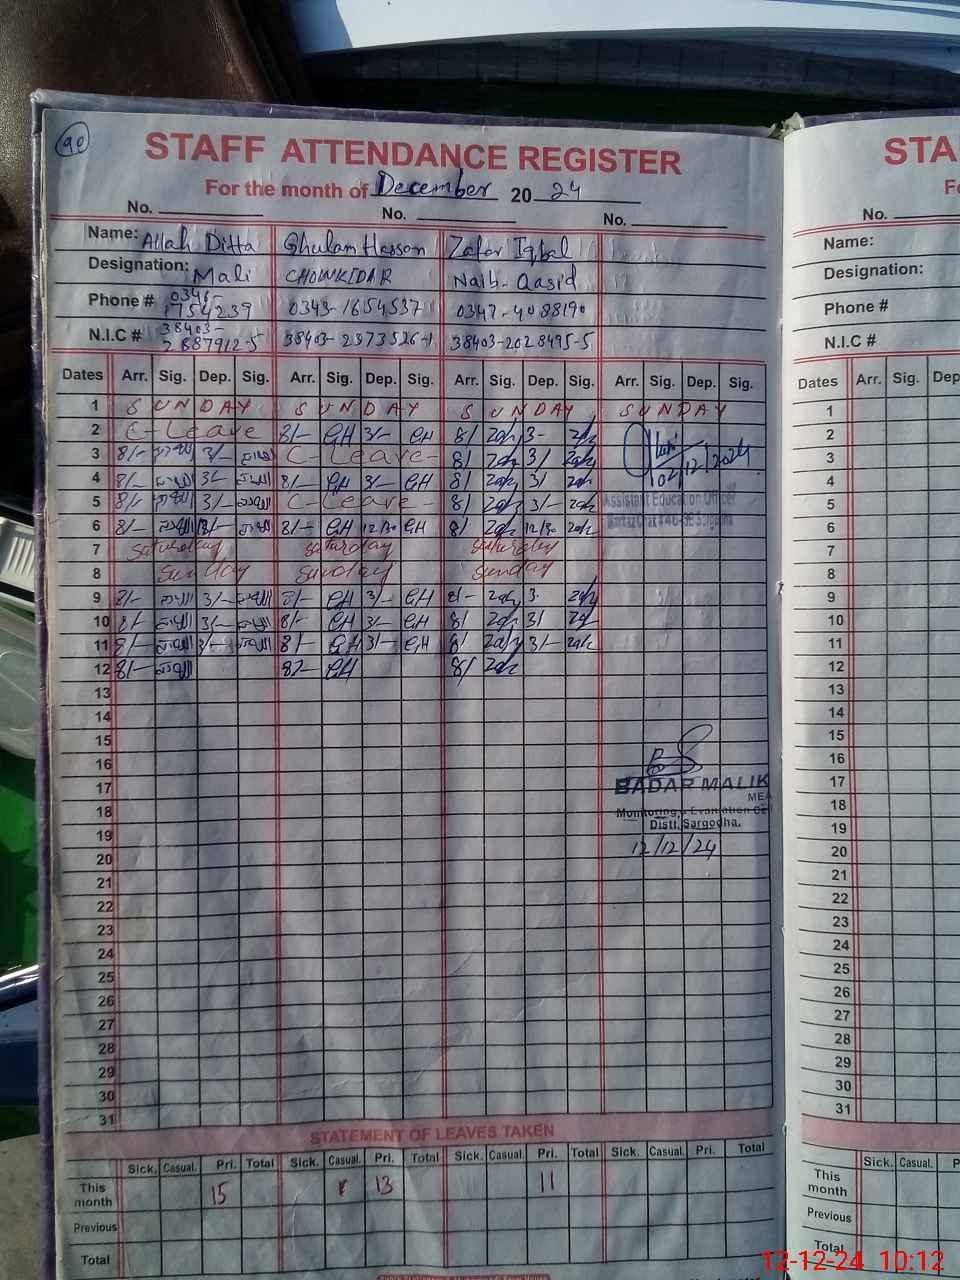 90
STAFF ATTENDANCE REGISTER STA
For the month of December 20 24
No. No. No. No.
Name: Allah Ditta Ghulam Hassan Zafar Iqbal Name:
Designation: Mali CHOWKIDAR Naib-Qasid Designation:
Phone # 0346- 1754239 0343-1654537 0347-4088190 Phone #
N.I.C # 38403- 2887912-5 38403-2373526-1 38403-2028495-5 N.I.C #
Dates Arr. Sig. Dep. Sig. Arr. Sig. Dep. Sig. Arr. Sig. Dep. Sig. Arr. Sig. Dep. Sig. Dates Arr. Sig. Dep
1 SUNDAY SUNDAY SUNDAY SUNDAY 1
2 C-Leave 8/- GH 3/- GH 8/ 3- 2
3 8/- 3/- C-Leave- 8/ 3/ 02/12/2024 3
4 8/- 3/- 8/- GH 3/- GH 8/ 3/ 4
5 8/- 3/- C-Leave- 8/ 3/- Assistant Education Officer 5
6 8/- 8/- GH 12/30 GH 8/ 12/30 6
7 Saturday Saturday Saturday 7
8 Sunday Sunday Sunday 8
9 8/- 3/- 8/- GH 3/- GH 8/- 3- 9
10 8/- 3/- 8/- GH 3/- GH 8/ 3/ 10
11 8/- 3/- 8/- GH 3/- GH 8/ 3/- 11
12 8/- 8/- GH 8/ 12
13 13
14 14
15 15
16 16
17 BADAR MALIK 17
MEA
18 Monitoring & Evaluation CE 18
19 Distt. Sargodha. 19
20 12/12/24 20
21 21
22 22
23 23
24 24
25 25
26 26
27 27
28 28
29 29
30 30
31 31
STATEMENT OF LEAVES TAKEN
Sick. Casual. Pri. Total Sick. Casual. Pri. Total Sick. Casual. Pri. Total Sick. Casual. Pri. Total Sick. Casual. P
This month 15 13 11 This month
Previous Previous
Total Total
12-12-24 10:12